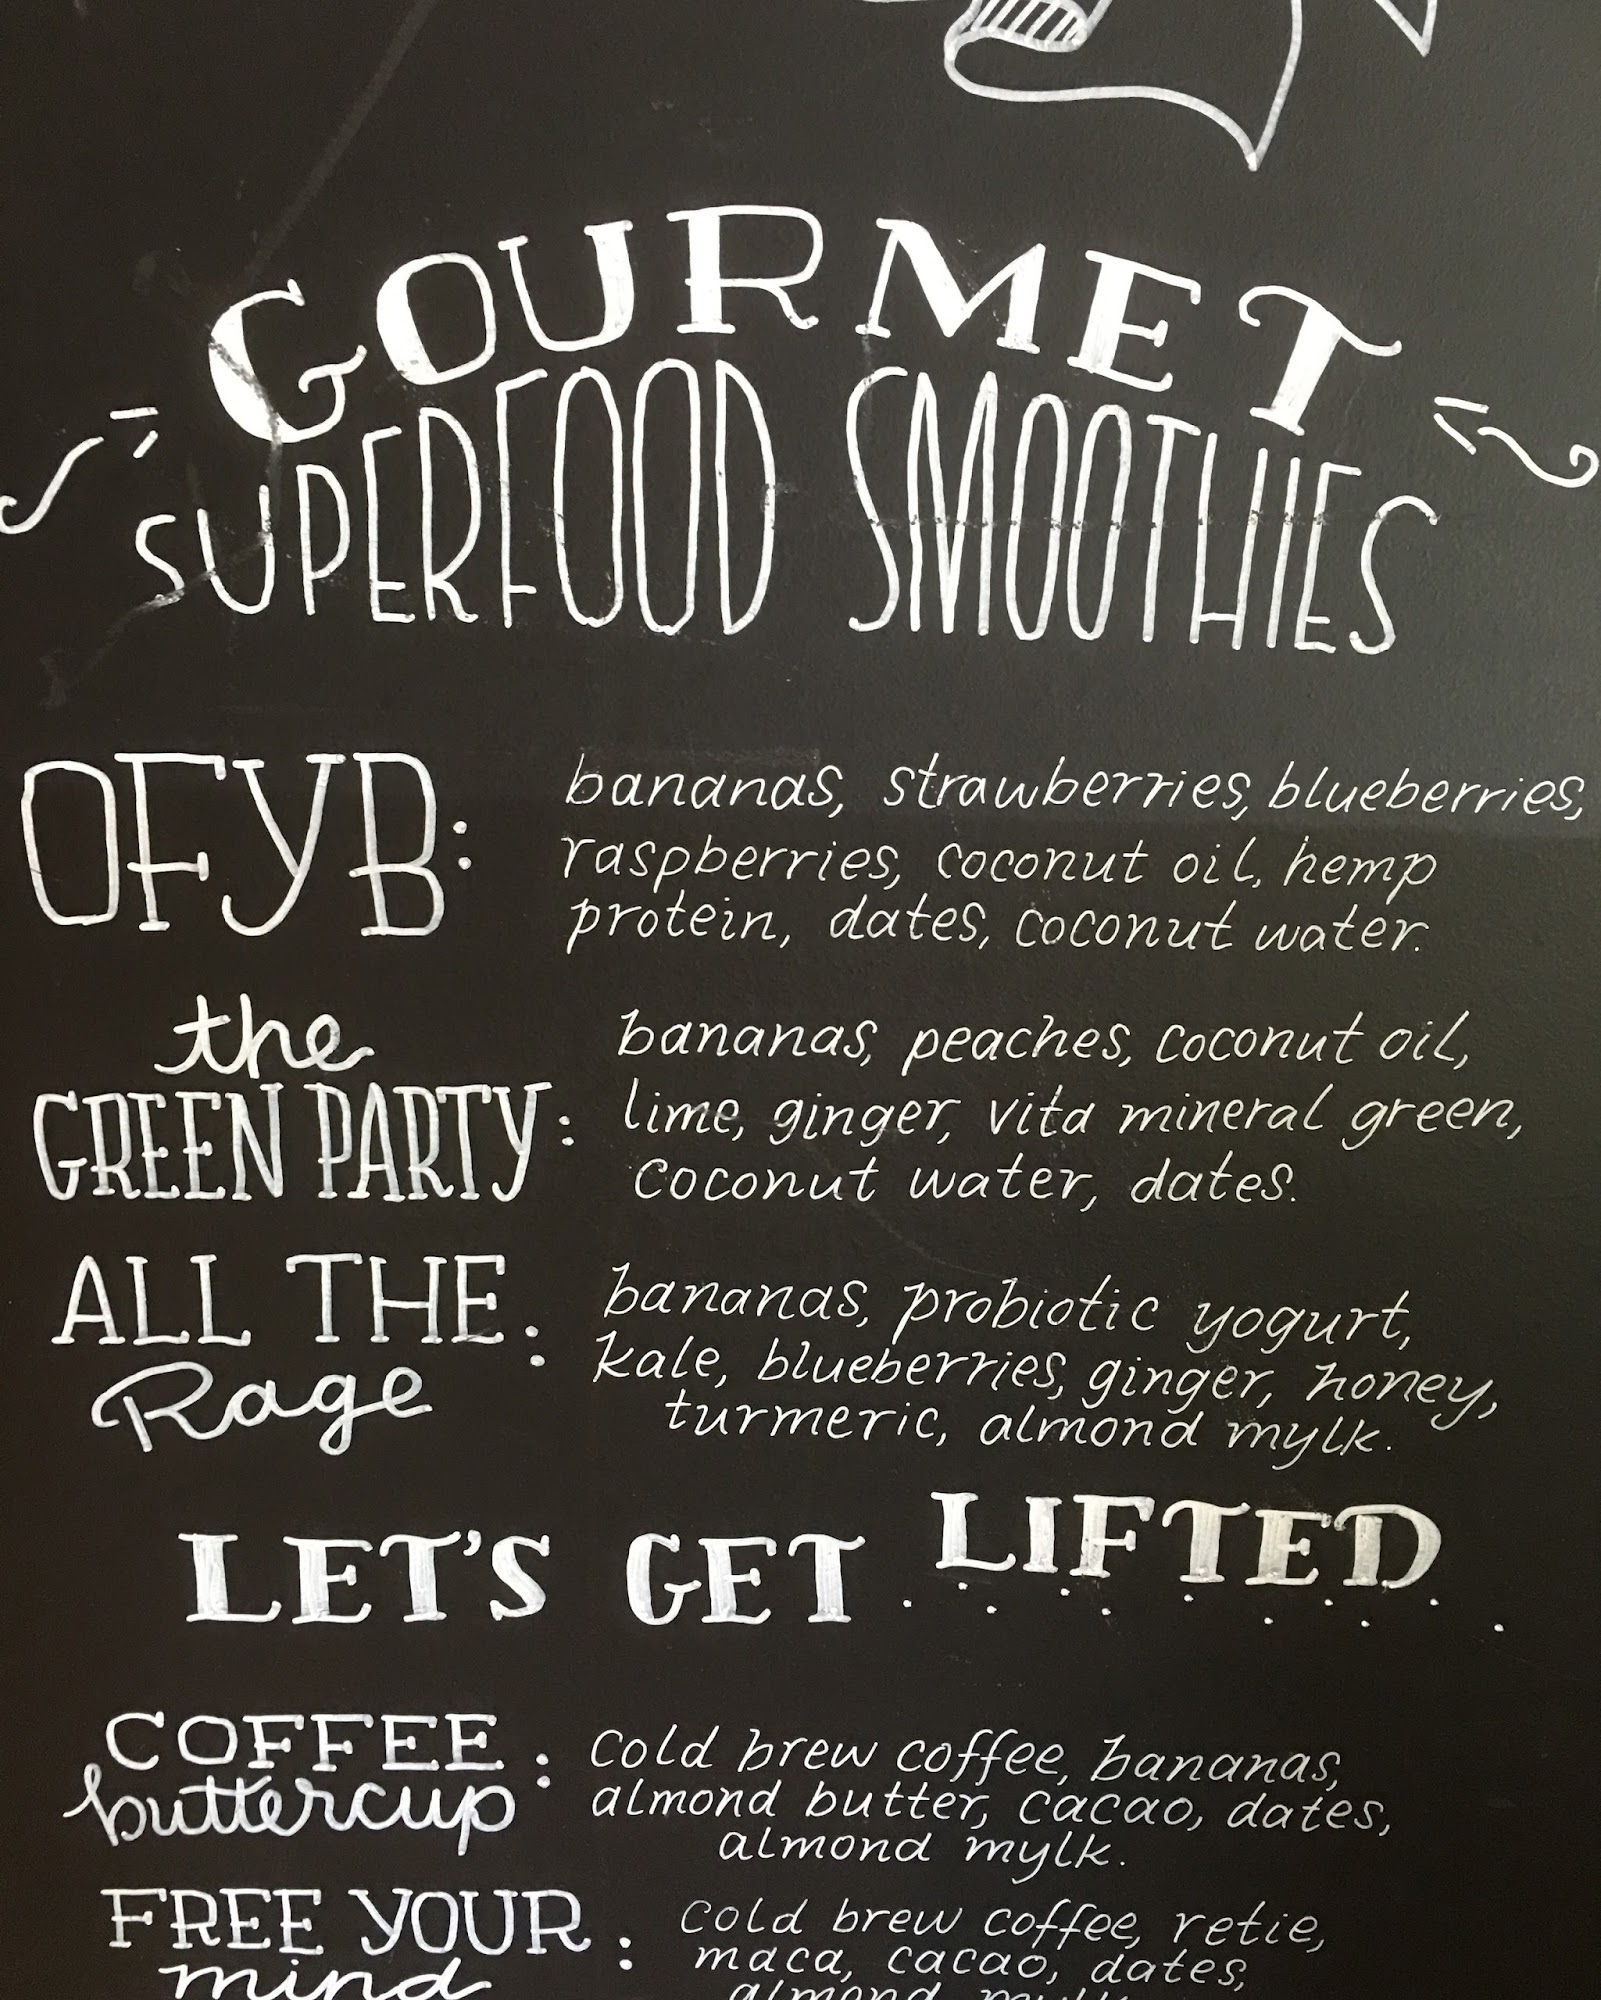 GOURMET
SUPERFOOD SMOOTHIES
OFYB: bananas, strawberries, blueberries,
raspberries, coconut oil, hemp
protein, dates, coconut water.
the
GREEN PARTY: bananas, peaches, coconut oil,
lime, ginger, vita mineral green,
coconut water, dates.
ALL THE
Rage: bananas, probiotic yogurt,
kale, blueberries, ginger, honey,
turmeric, almond mylk.
LET'S GET LIFTED
COFFEE
buttercup: cold brew coffee, bananas,
almond butter, cacao, dates,
almond mylk.
FREE YOUR
mind: cold brew coffee, retie,
maca, cacao, dates,
almond mylk